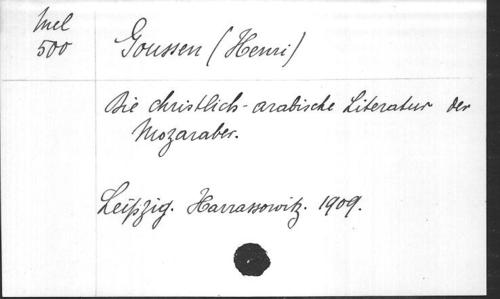 Mel
500
Goussen (Henri)
Die christlich-arabische Literatur der
Mozaraber.
Leipzig. Harrassowitz. 1909.